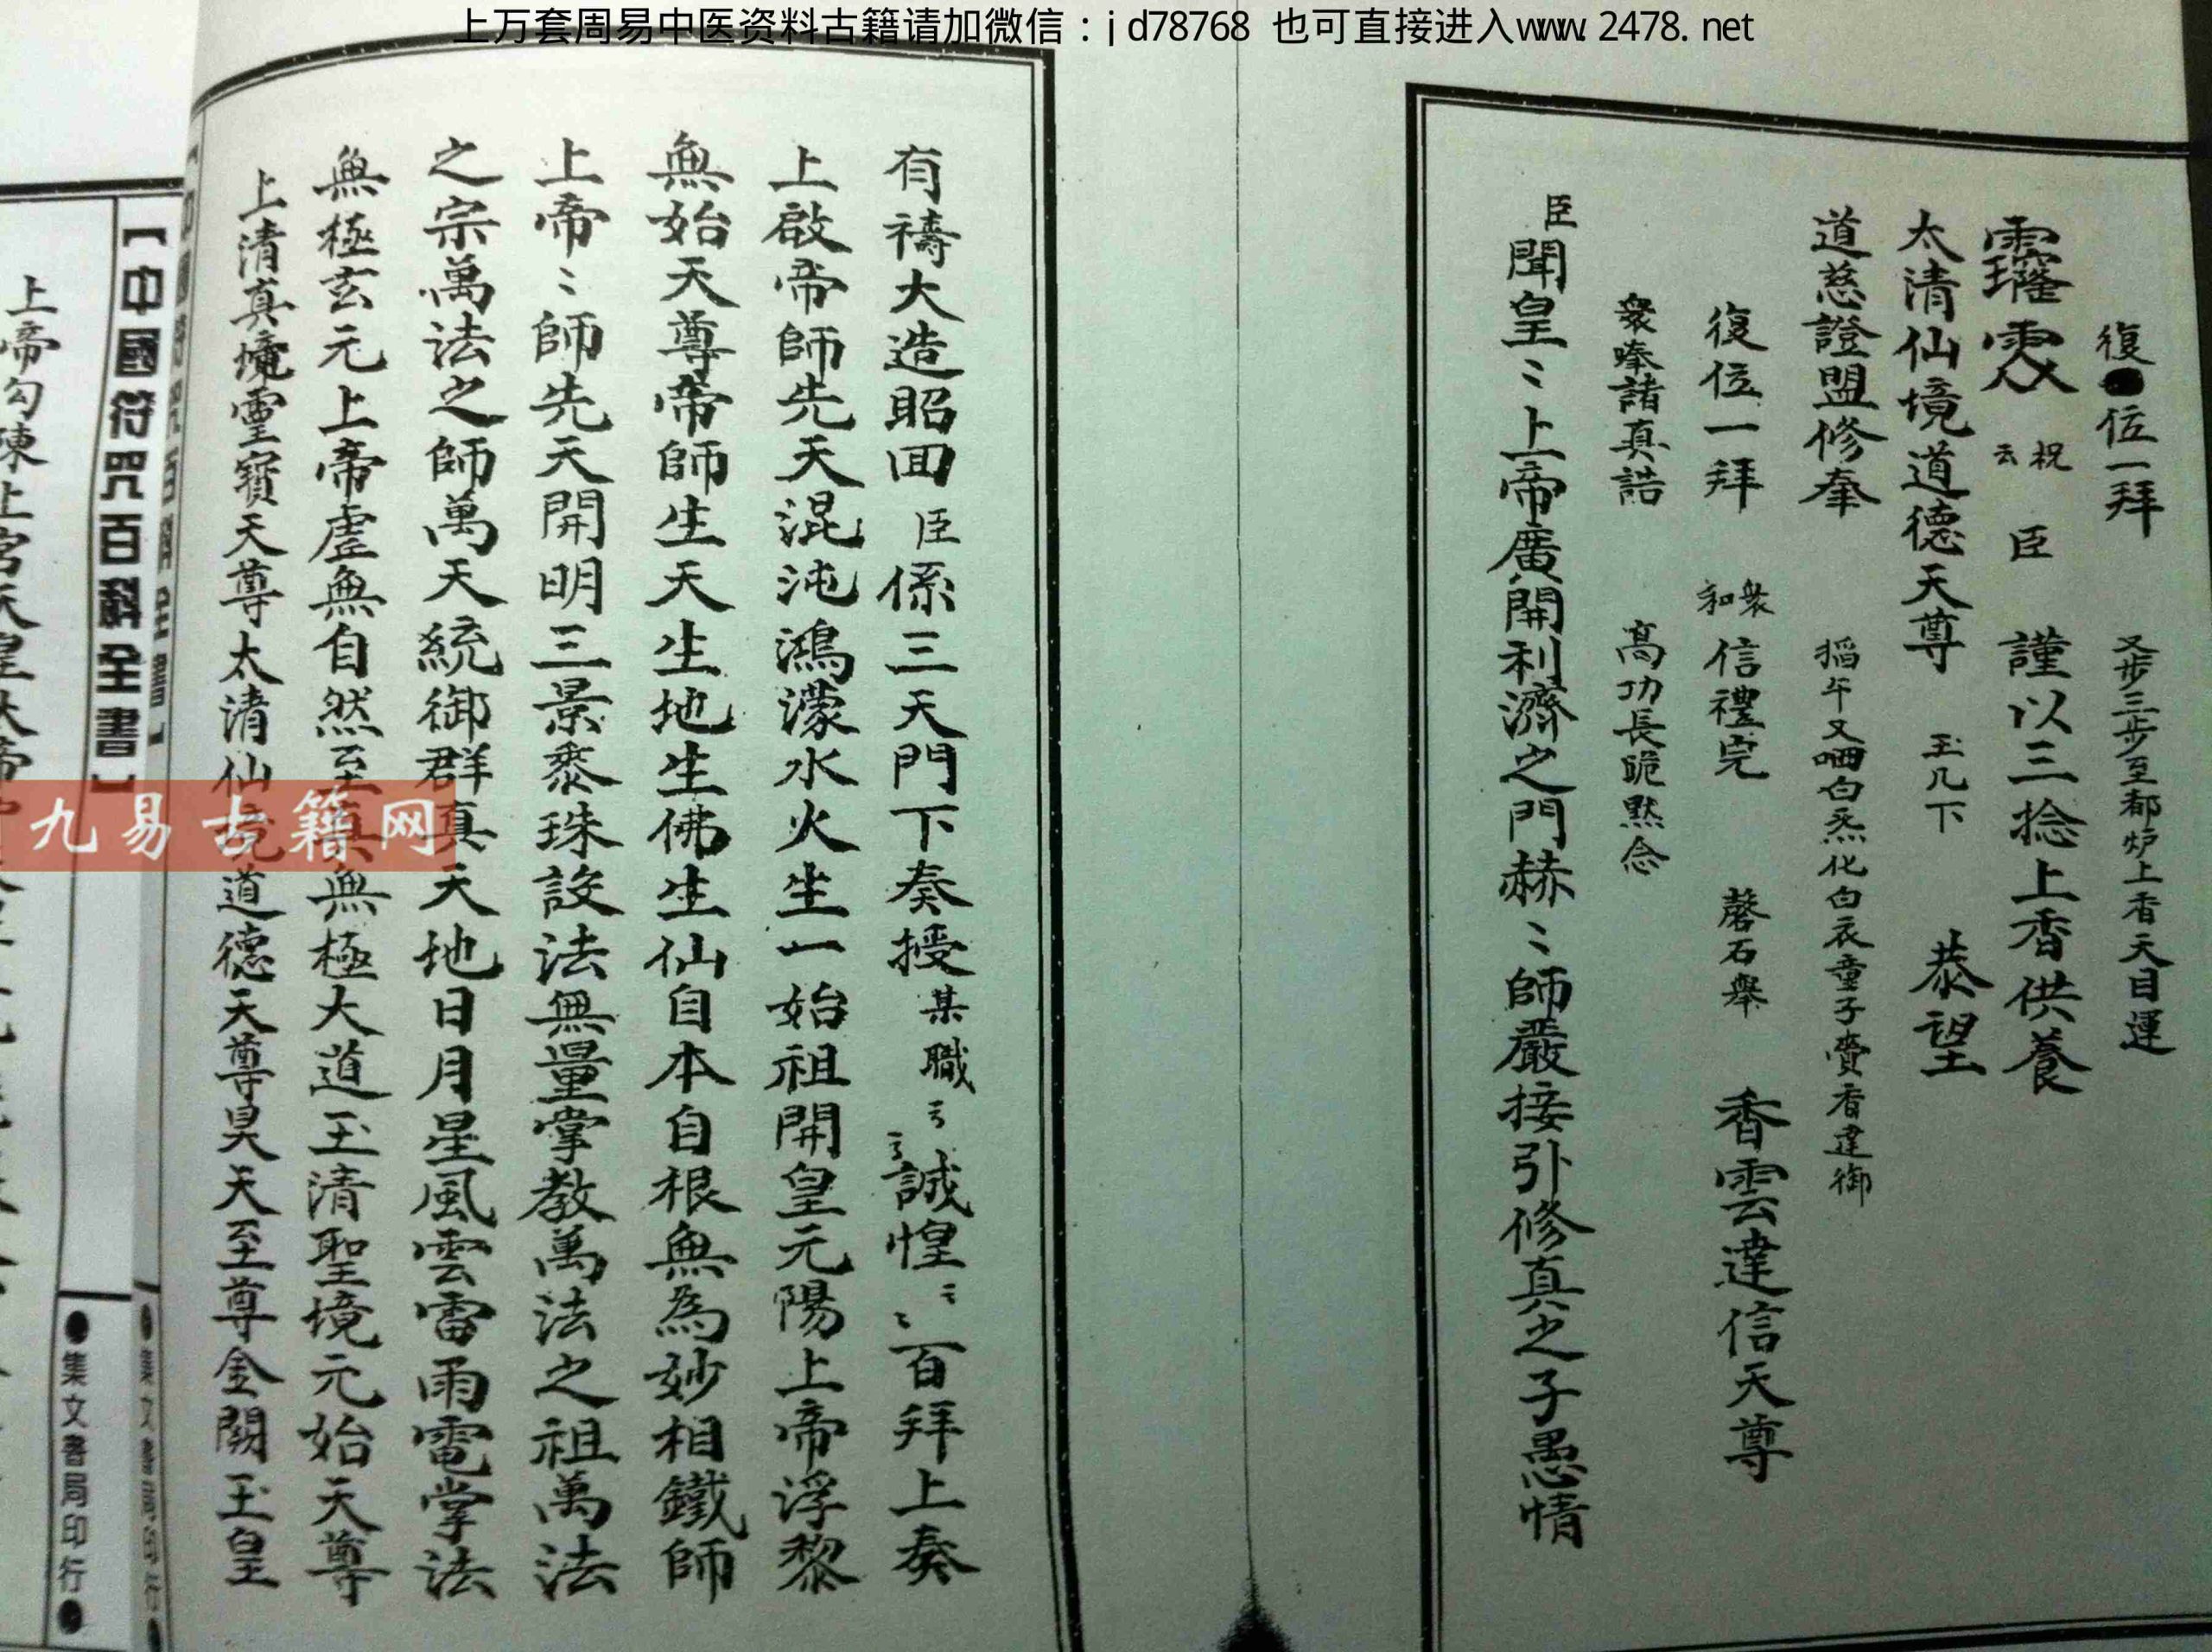 上万套周易中医资料古籍请加微信：jd78768 也可直接进入www.2478.net
復●位一拜 又步三步至都炉上香天目運
祝云 臣 謹以三捻上香供養
太清仙境道德天尊 玉几下 恭望
道慈證盟修奉 搯午又哂白炁化白衣童子賫香達御
復位一拜 衆和 信禮完 磬石舉 香雲達信天尊
衆奉諸真誥 高功長跪黙念
臣聞皇〻上帝廣開利濟之門赫〻師嚴接引修真之子愚情
有禱大造昭回 臣 係三天門下奏授 某職 誠惶 百拜上奏
上啟帝師先天混沌鴻濛水火生一始祖開皇元陽上帝浮黎
無始天尊帝師生天生地生佛生仙自本自根無為妙相鐵師
上帝〻師先天開明三景黍珠設法無量掌教萬法之祖萬法
之宗萬法之師萬天統御群真天地日月星風雲雷雨電掌法
無極玄元上帝虛無自然至真無極大道玉清聖境元始天尊
上清真境靈寶天尊太清仙境道德天尊昊天至尊金闕玉皇
【中國符咒百科全書】
●集文書局印行●
上帝勾陳上宮天皇大帝
九易古籍网